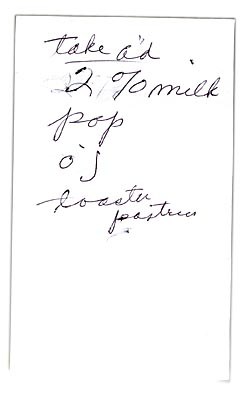 take ad
2% milk
pop
o'j
toaster
pastries